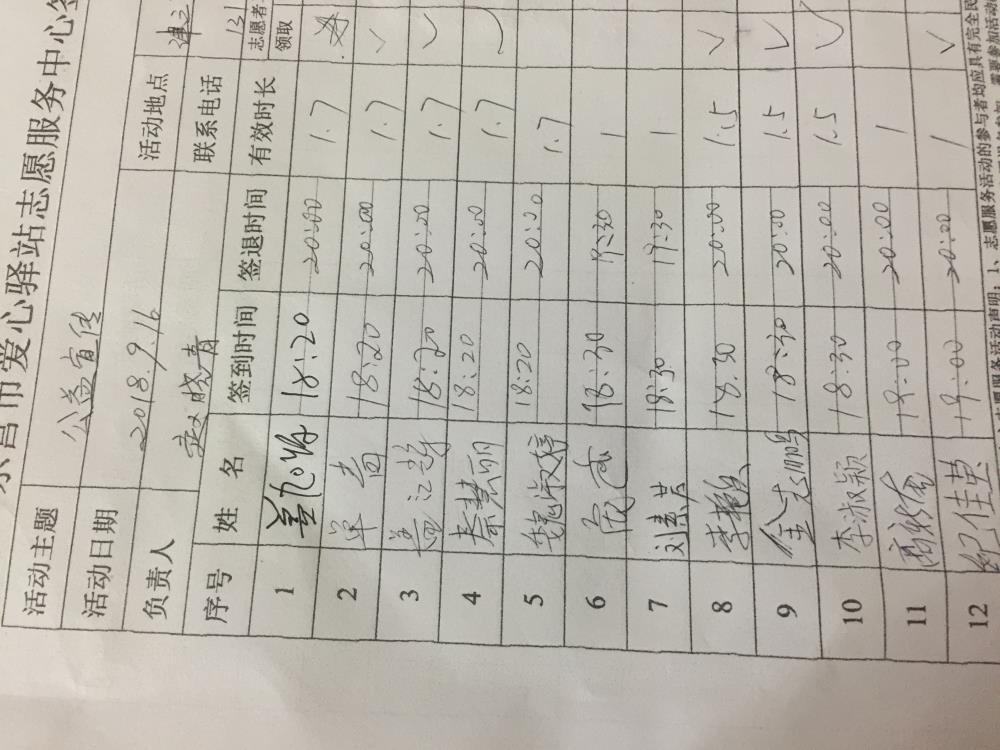 营市爱心驿站志愿服务中心
活动主题 公益宣传 活动地点
活动日期 2018.9.16 联系电话 131
负责人
序号 姓名 签到时间 签退时间 有效时长 志愿者领取
1 18:20 20:00 1.7
2 单 18:20 20:00 1.7 ✓
3 盖江 18:20 20:00 1.7 ✓
4 秦慧丽 18:20 20:00 1.7 ✓
5 魏淑婷 18:20 20:00 1.7
6 18:30 19:30 1
7 刘慧芸 18:30 19:30 1
8 李艳 18:30 20:00 1.5 ✓
9 金志鹏 18:30 20:00 1.5 ✓
10 李淑颖 18:30 20:00 1.5 ✓
11 19:00 20:00 1
12 纪佳英 19:00 20:00 1 ✓
志愿服务活动声明：1、志愿服务活动的参与者均应具有完全民